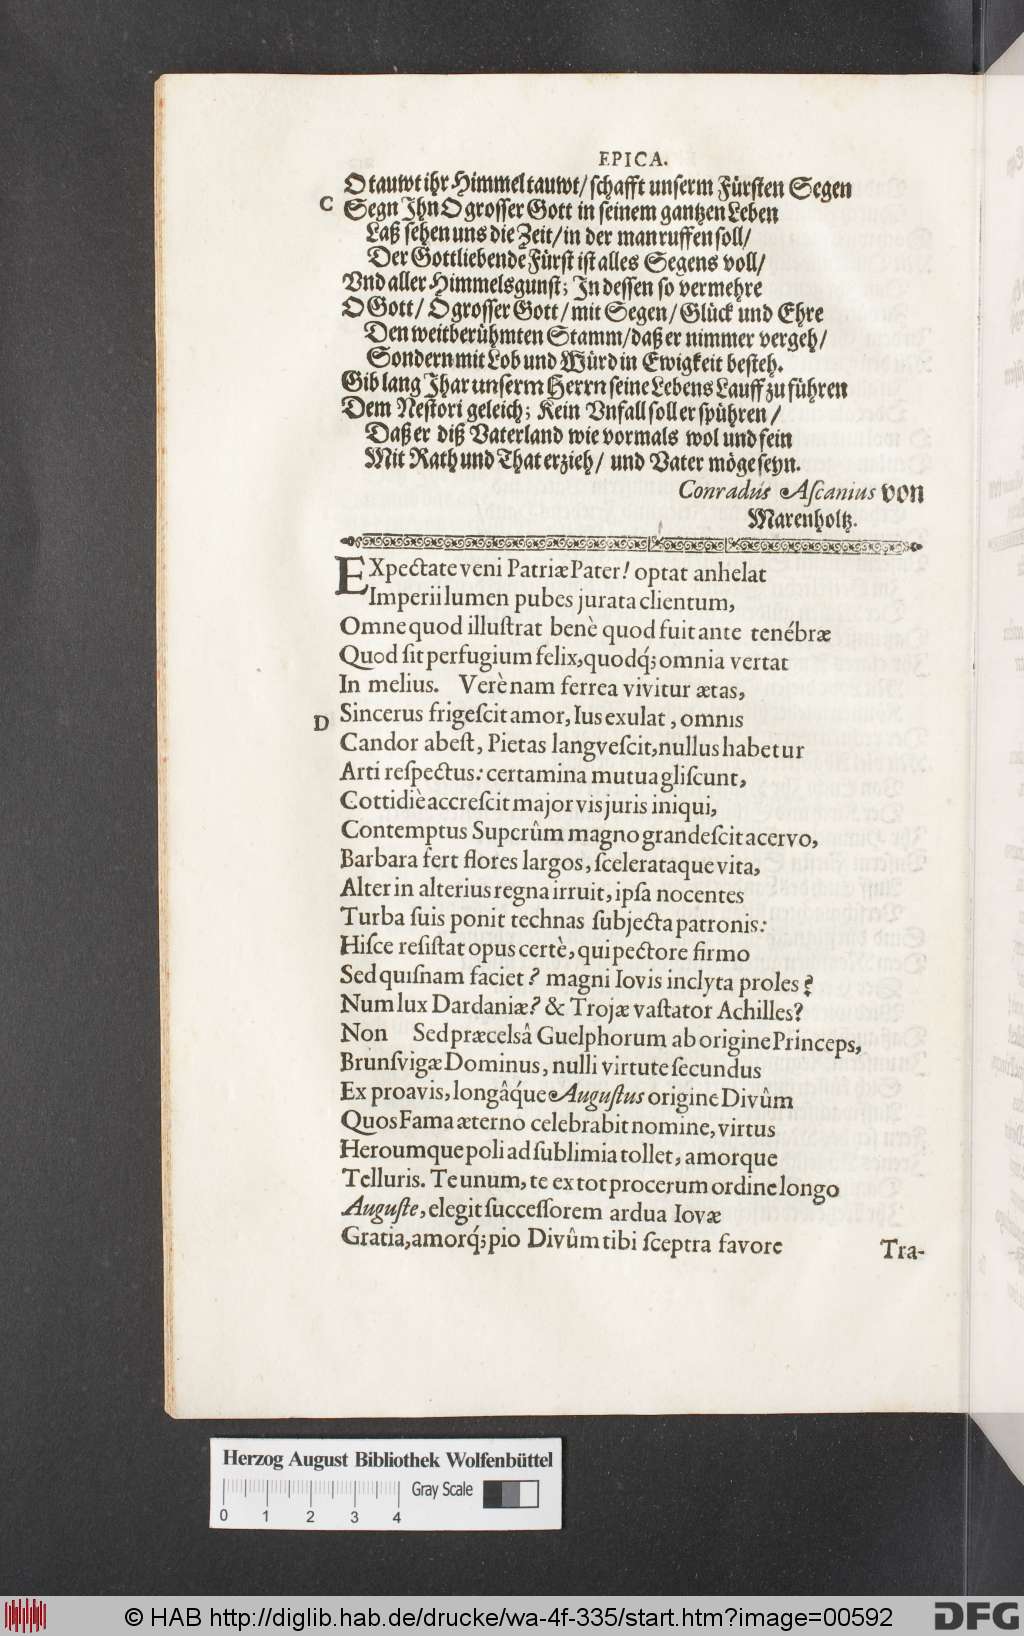 EPICA.
O tauwt ihr Himmel tauwt/ schafft unserm Fürsten Segen
C Segn Ihn O grosser Gott in seinem gantzen Leben
Laß sehen uns die Zeit/ in der man ruffen soll/
Der Gottliebende Fürst ist alles Segens voll/
Vnd aller Himmelsgunst; In dessen so vermehre
O Gott/ O grosser Gott/ mit Segen/ Glück und Ehre
Den weitberühmten Stamm/ daß er nimmer vergeh/
Sondern mit Lob und Würd in Ewigkeit besteh.
Gib lang Jhar unserm Herrn seine Lebens Lauff zu führen
Dem Nestori geleich; Kein Vnfall soll er spühren/
Daß er diß Vaterland wie vormals wol und fein
Mit Rath und That erzieh/ und Vater möge seyn.
Conradus Aſcanius von
Marenholtz.
EXpectate veni Patriæ Pater! optat anhelat
Imperii lumen pubes jurata clientum,
Omne quod illuſtrat benè quod fuit ante tenébræ
Quod ſit perfugium felix, quodq́; omnia vertat
In melius. Verè nam ferrea vivitur ætas,
D Sincerus frigeſcit amor, Ius exulat, omnis
Candor abeſt, Pietas langveſcit, nullus habetur
Arti reſpectus: certamina mutua gliſcunt,
Cottidiè accreſcit major vis juris iniqui,
Contemptus Superûm magno grandeſcit acervo,
Barbara fert flores largos, ſcelerataque vita,
Alter in alterius regna irruit, ipſa nocentes
Turba ſuis ponit technas ſubjecta patronis:
Hiſce reſiſtat opus certè, qui pectore firmo
Sed quiſnam faciet? magni Iovis inclyta proles?
Num lux Dardaniæ? & Trojæ vaſtator Achilles?
Non Sed præcelsâ Guelphorum ab origine Princeps,
Brunſvigæ Dominus, nulli virtute ſecundus
Ex proavis, longâq́ue Auguſtus origine Divûm
Quos Fama æterno celebrabit nomine, virtus
Heroumque poli ad ſublimia tollet, amorque
Telluris. Te unum, te ex tot procerum ordine longo
Auguſte, elegit ſucceſſorem ardua Iovæ
Gratia, amorq́; pio Divûm tibi ſceptra favore
Tra-
Herzog August Bibliothek Wolfenbüttel
Gray Scale
0 1 2 3 4
© HAB http://diglib.hab.de/drucke/wa-4f-335/start.htm?image=00592
DFG